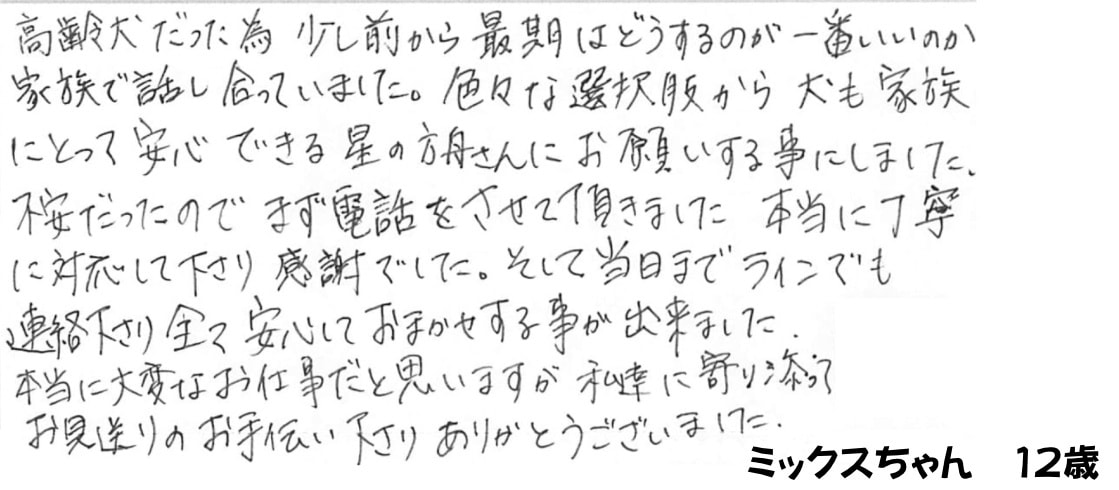 高齢犬だった為 少し前から最期はどうするのが一番いいのか
家族で話し合っていました。色々な選択肢から 犬も家族
にとって安心できる星の方舟さんにお願いする事にしました。
不安だったので まず電話をさせて頂きました 本当に丁寧
に対応して下さり 感謝でした。そして当日までラインでも
連絡下さり全て安心しておまかせする事が出来ました.
本当に大変なお仕事だと思いますが 私達に寄り添って
お見送りのお手伝い下さり ありがとうございました.
ミックスちゃん 12歳